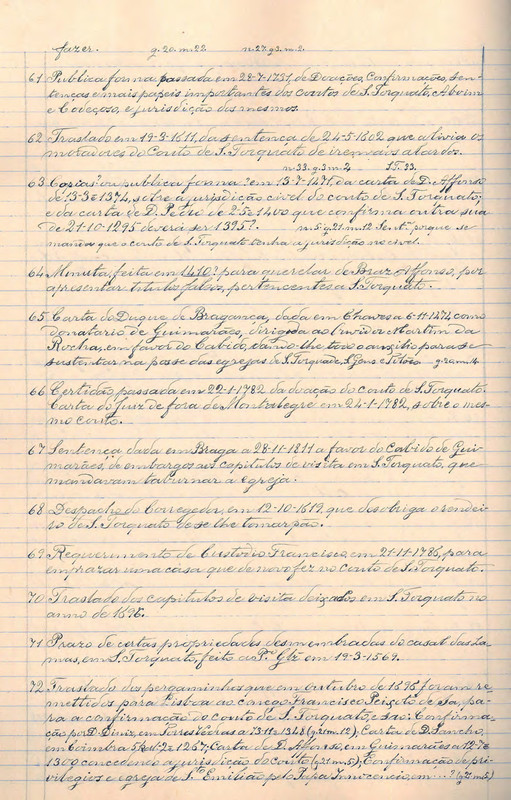 fazer. g. 20. m. 22 n. 27 g. 3. m. 2.
61 Publica forma, passada em 28-7-1731, de Doações, Confirmações, Sen-
tenças e mais papeis importantes dos coutos de S. Torquato, Aboim
e Codeçoso, e jurisdição dos mesmos.
62 Traslado em 19-3-1611, da sentença de 24-5-1602 que alivia os
moradores do Couto de S. Torquato de irem aos alardos.
n. 33. g. 3. m. 4
63 Copias? ou publica forma? em 13-7-1431, da carta de D. Affonso
de 13-3-1374, sobre a jurisdição civel do couto de S. Torquato;
e da carta de D. Pedro de 1400 que confirma outra sua
de 21-10-1295 deverá ser 1395?. n. 5. g. 21. m. 12 Sentª. porque se
manda que o couto de S. Torquato tenha a jurisdição no civel.
64 Minuta, feita em 1410? para querelar de Braz Affonso, por
apresentar titulos falsos, pertencentes a S. Torquato.
65 Carta do Duque de Bragança, dada em Chaves a 6-11-1474 como
donatario de Guimarães, dirigida ao Ouvidor Martim da
Rocha, em favor do Cabido, dando-lhe todo o auxilio para se
sustentar na posse das egrejas de S. Torquato, S. Gens e g. 20. m. 14
66 Certidão passada em 22-1-1782 da doação do couto de S. Torquato.
Carta do juiz de fora de Montalegre em 24-1-1782, sobre o mes-
mo couto.
67 Sentença dada em Braga a 28-11-1811 a favor do Cabido de Gui-
marães, de embargos aos capitulos de visita em S. Torquato, que
mandavam taburnar a egreja.
68 Despacho do Corregedor, em 12-10-1619, que desobriga o rendei-
ro de S. Torquato de se lhe tomar pão.
69 Requerimento de Custodio Francisco, em 21-11-1786, para
emprazar uma casa que de novo fez no couto de S. Torquato.
70 Traslado dos capitulos de visita deixados em S. Torquato no
anno de 1696.
71 Prazo de certas propriedades desmembradas do casal das La-
mas, em S. Torquato, feito ao Pᵉ. Glz em 19-3-1569.
72 Traslado dos pergaminhos que em outubro de 1696 foram re-
mettidos para Lisboa ao conego Francisco Peixoto de Sá, pa-
ra a confirmação do couto de S. Torquato, e são: Confirma-
ção por D. Diniz, em Torres Vedras a 13-11-1348 (g. 21 m. 12); Carta de D. Sancho,
em Coimbra 1267; Carta de D. Affonso, em Guimarães a
1309 concedendo a jurisdição do couto (g. 21 m. 5); Confirmação de pri-
vilegios e egreja de Stª Emilião pelo Papa Innocencio, em ...? (g. 21 m. 5)